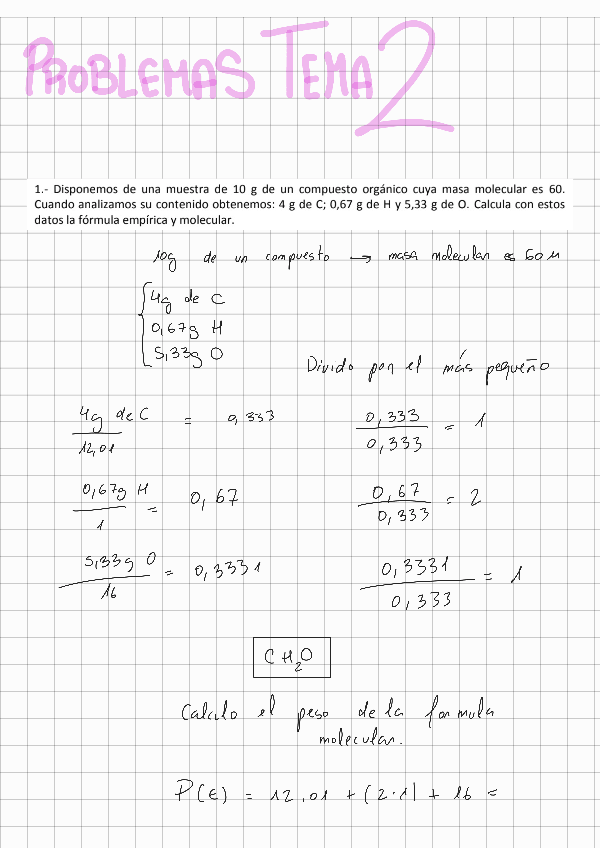 PROBLEMAS TEMA 2
1.- Disponemos de una muestra de 10 g de un compuesto orgánico cuya masa molecular es 60.
Cuando analizamos su contenido obtenemos: 4 g de C; 0,67 g de H y 5,33 g de O. Calcula con estos
datos la fórmula empírica y molecular.
10g de un compuesto → masa molecular es 60 u
4g de C
0,67g H
5,33g O
Divido por el más pequeño
4g de C / 12,01 = 0,333
0,333 / 0,333 = 1
0,67g H / 1 = 0,67
0,67 / 0,333 = 2
5,33g O / 16 = 0,3331
0,3331 / 0,333 = 1
CH₂O
Calculo el peso de la formula
molecular.
P(E) = 12,01 + (2·1) + 16 =